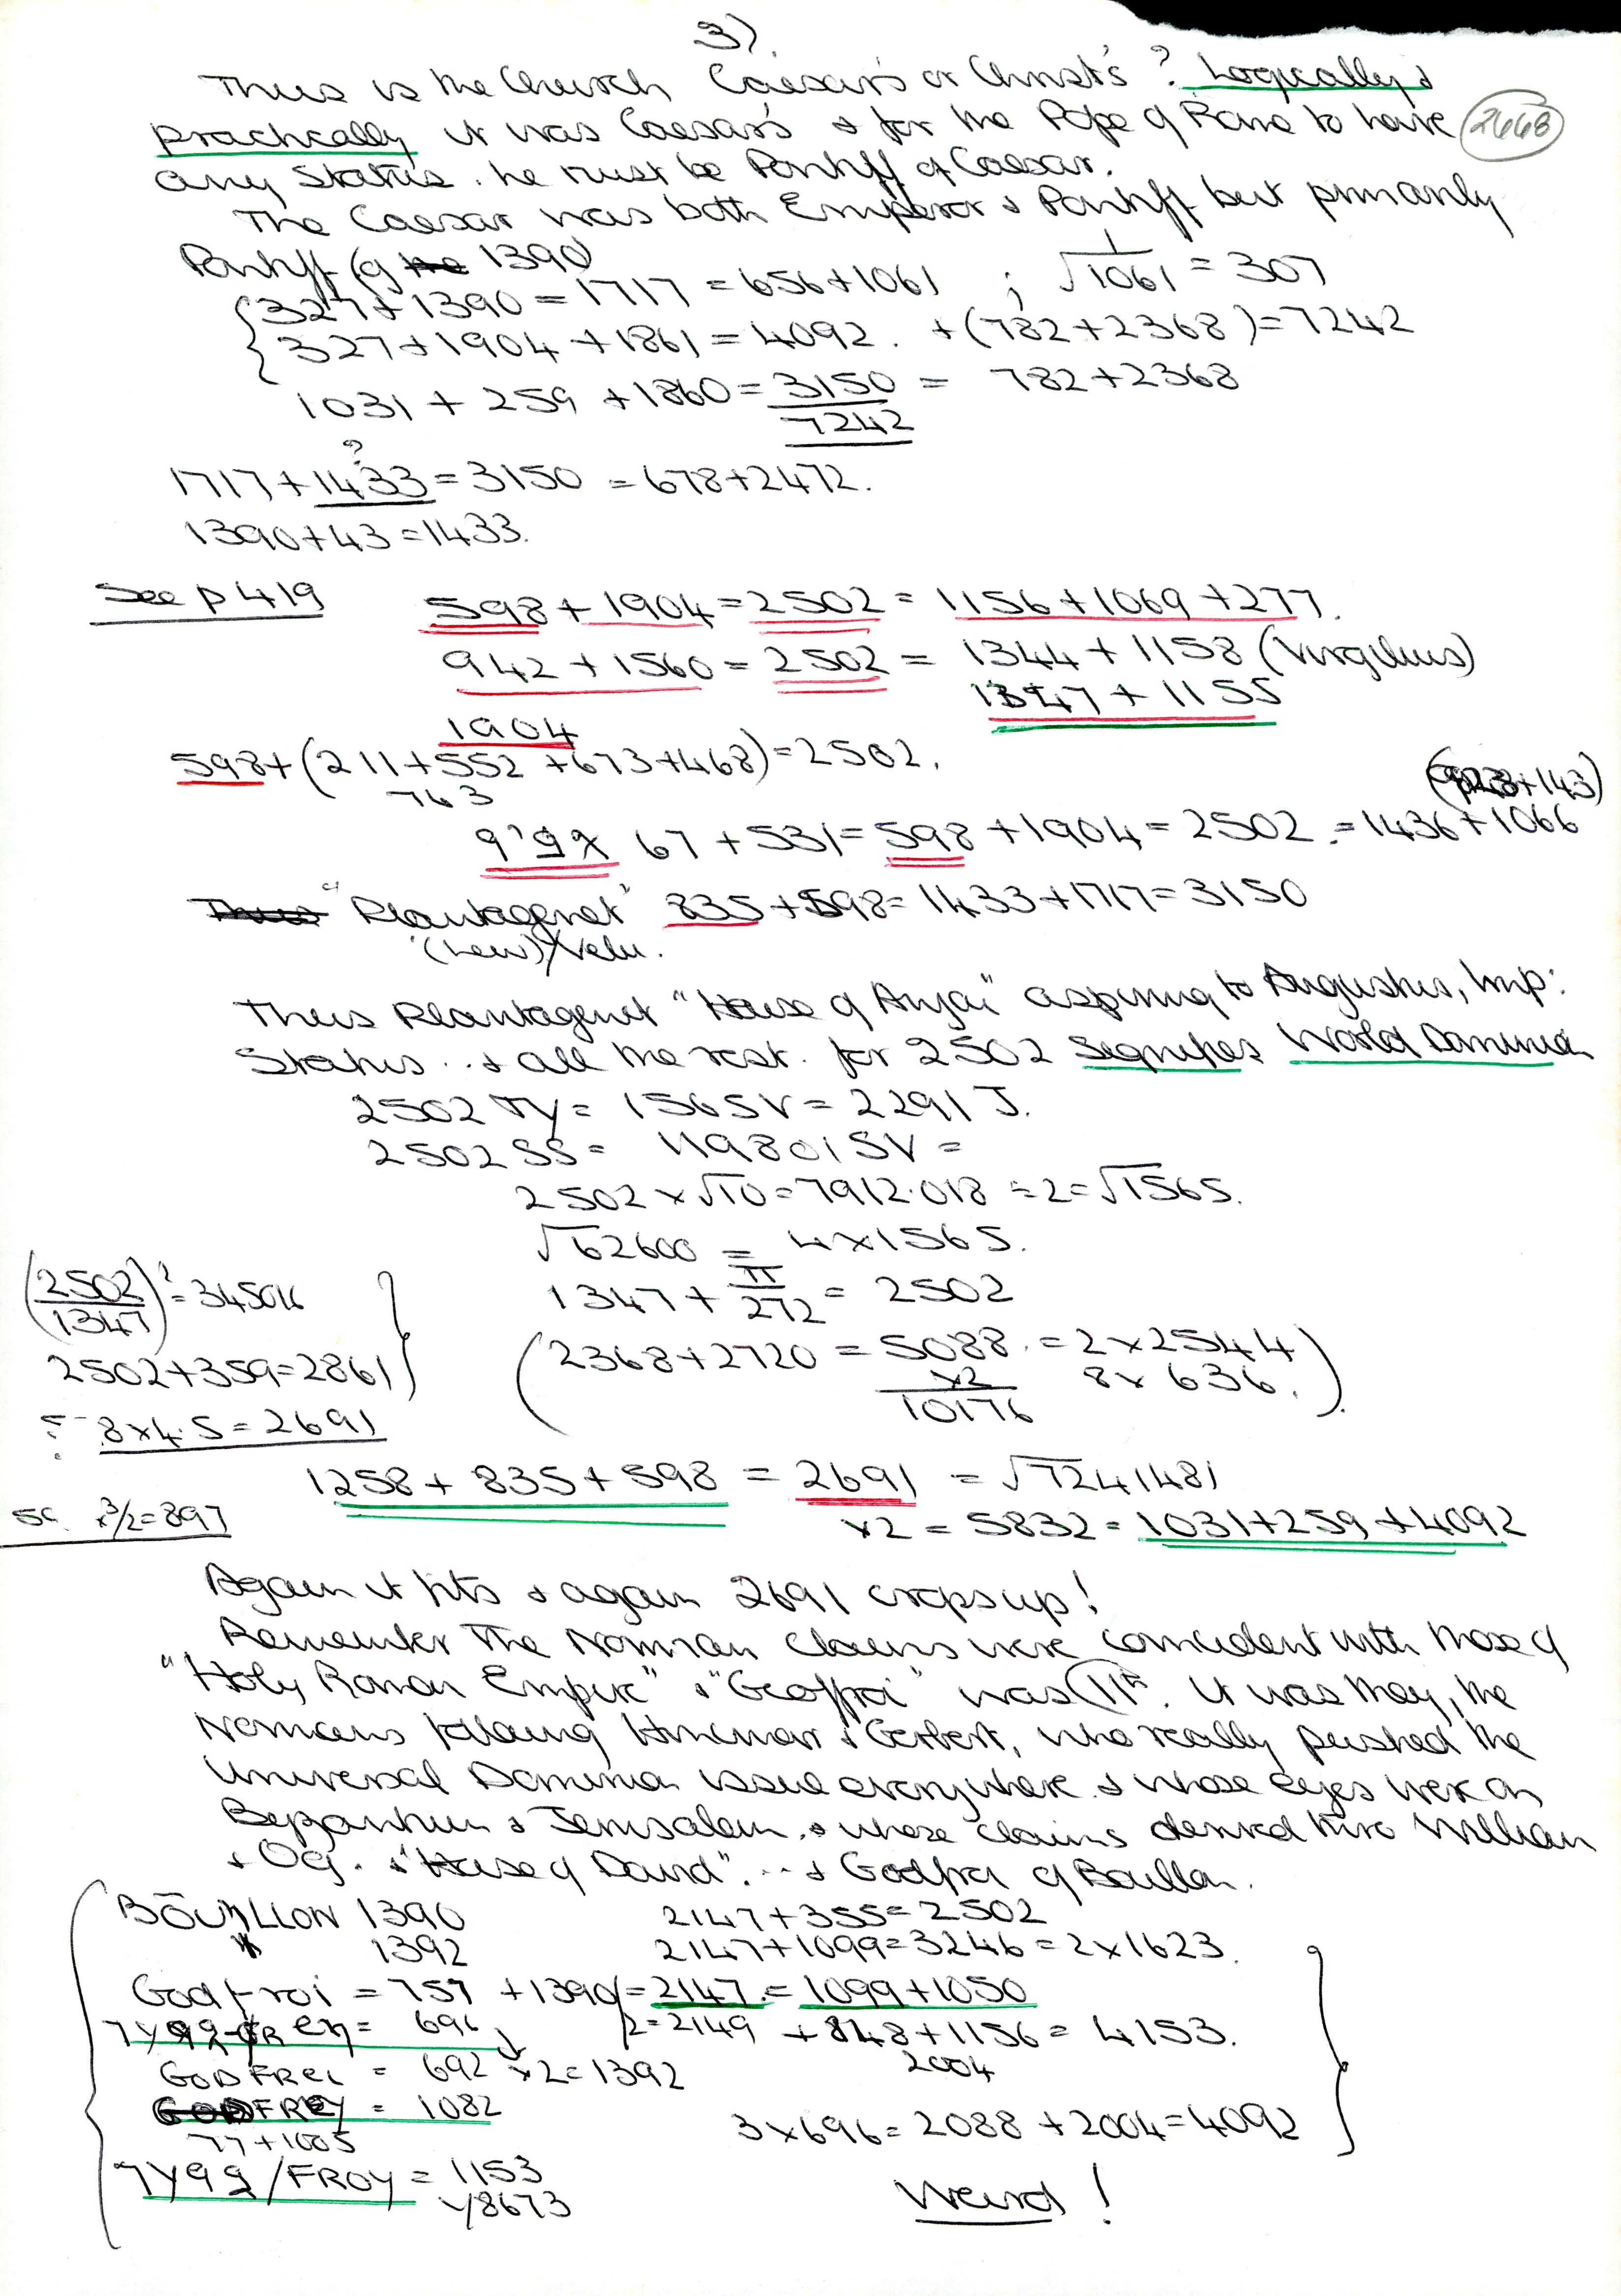 3).
Thus is the Church Caesar's or Christ's ? Logically &
practically it was Caesar's & for the Pope of Rome to have
2668
any status. he must be Pontiff of Caesar.
The Caesar was both Emperor & Pontiff but primarily
Pontiff (of the 1390)
327 + 1390 = 1717 = 656+1061 ; 1/√1061 = 307
327+1904 +1861 = 4092. +(782+2368)=7242
1031 + 259 +1860 = 3150 = 782+2368
7242
?
1717+1433=3150 =678+2472.
1390+43=1433.
See p 419
598+1904=2502 = 1156+1069+277.
942+1560=2502 = 1344+1158 (Virgilius)
1347+1155
1904
598+(211+552+673+468)=2502.
763
(923+143)
67+531=598+1904=2502.=1436+1066
Thus "Plantagenet" 835+598=1433+1717=3150
(Lew)/Velu.
Thus Plantagenet "House of Anjou" aspiring to Augustus, Imp:
Status .. & all the rest. for 2502 signifies World Dominion
2502 TY= 1565V= 2291 J.
2502 SS= 119801SV =
2502×√10=7912.018 =2=√1565.
√62600 = 4×1565.
1347 + π/272 = 2502
(2502/1347)² = 345016
2502+359=2861
(2368+2720 = 5088. = 2×2544
×2 8×636.)
10176
8×4.5=2691
1258+835+598 = 2691 = √7241481
×3/2=897
×2 = 5832 = 1031+259+4092
Again it fits & again 2691 crops up!
Remember The Norman claims were coincident with those of
"Holy Roman Empire" & "Geoffroi" was 11th. It was they, the
Normans following Hincmar & Gerbert, who really pushed the
Universal Dominion issue everywhere. & whose eyes were on
Byzantium & Jerusalem. & whose claims derived thro William
& Og. & "House of David". .. & Godfroi of Bouillon.
BŌUILLON 1390 2147+355=2502
" 1392 2147+1099=3246=2×1623.
Godfroi = 757 +1390/=2147.=1099+1050
696 /2=2149 +848+1156= 4153.
GODFREI = 692 ×2=1392 2004
GODFREY = 1082
77+1005 3×696=2088+2004=4092
/FROY = 1153
√8673 Weird !